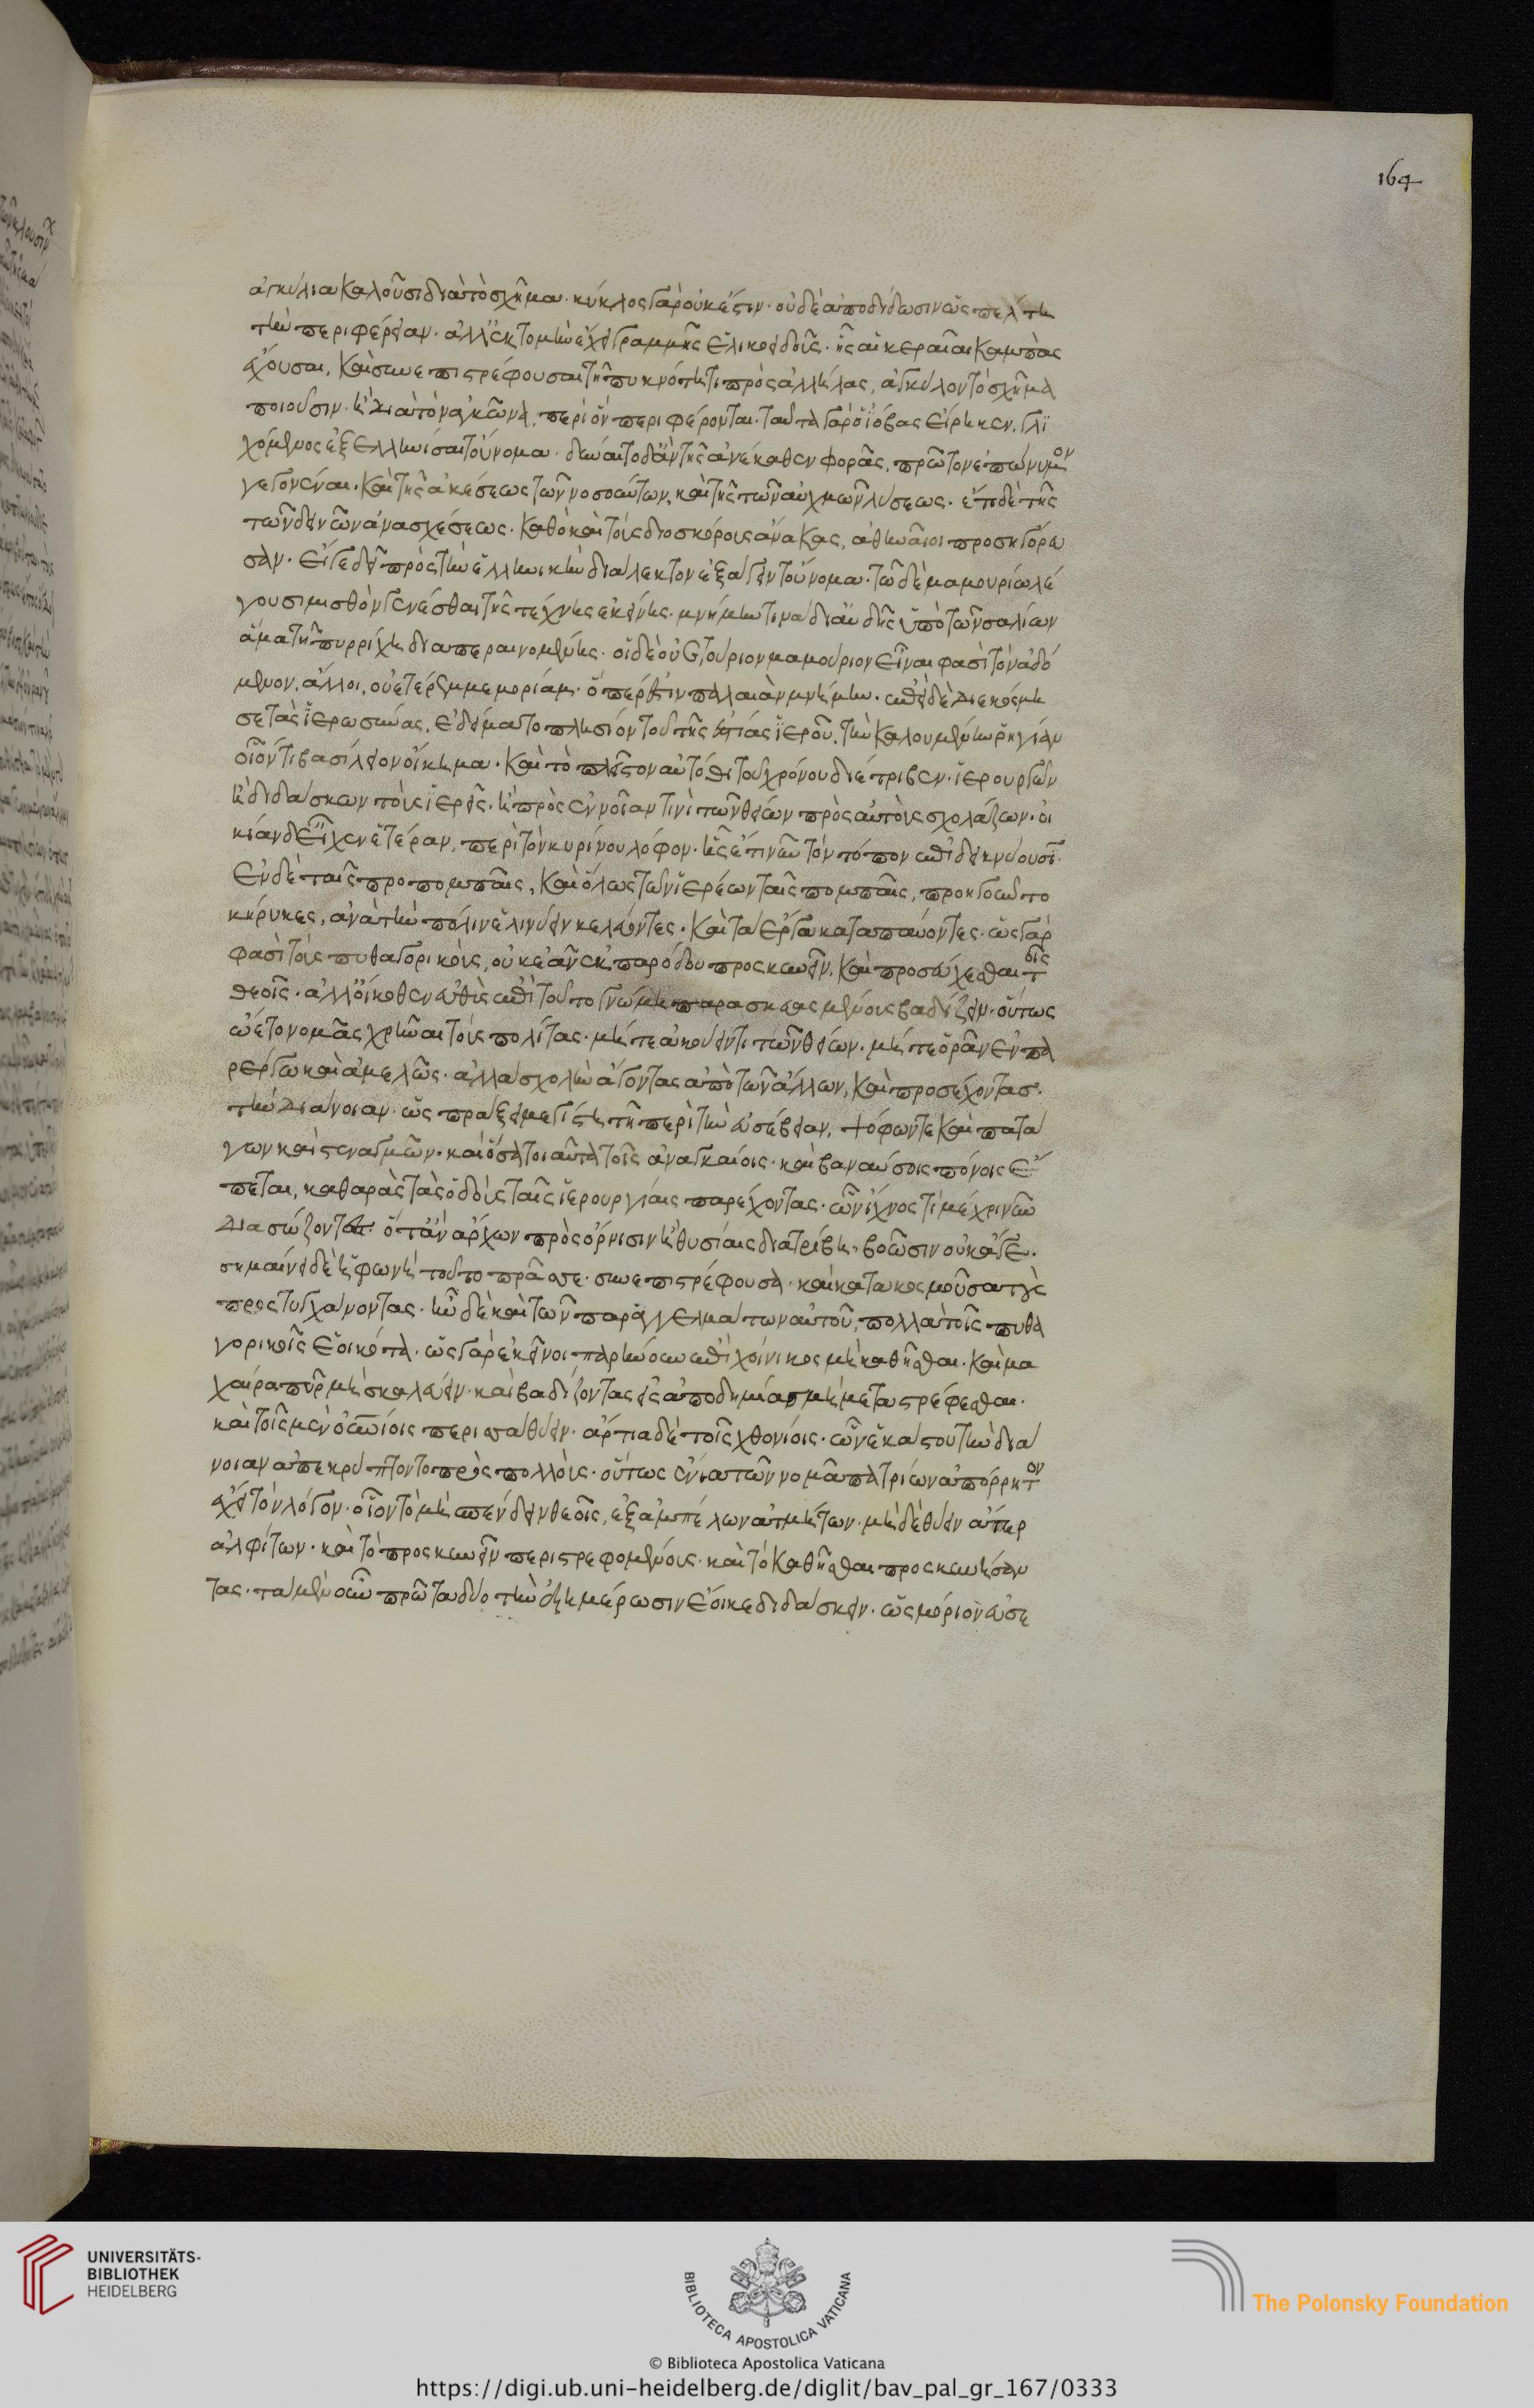 164
ἀγκύλια καλοῦσι διὰ τὸ σχῆμα· κύκλος γὰρ οὐκ ἔστιν· οὐδὲ ἀποδίδωσιν ὡς πέλτη
τὴν περιφέρειαν· ἀλλ' ἐκτομὴν ἔχει γραμμῆς ἑλικοειδοῦς· ἧς αἱ κεραῖαι καμπὰς
ἔχουσαι, καὶ συνεπιστρέφουσαι τῇ πυκνότητι πρὸς ἀλλήλας, ἀγκύλον τὸ σχῆμα
ποιοῦσιν· ἢ διὰ τὸν ἀγκῶνα, περὶ ὃν περιφέρονται. ταῦτα γὰρ ὁ ἰόβας εἴρηκεν, γλι
χόμενος ἐξελληνίσαι τοὔνομα· δύναιτο δ' ἂν τῆς ἀνέκαθεν φορᾶς, πρῶτον ἐπώνυμον
γεγονέναι. καὶ τῆς ἀκέσεως τῶν νοσούντων, καὶ τῆς τῶν αὐχμῶν λύσεως. ἔτι δὲ τῆς
τῶν δεινῶν ἀνασχέσεως. καθὸ καὶ τοὺς διοσκόρους ἄνακας, ἀθηναῖοι προσηγόρευ
σαν. εἴγε δεῖ πρὸς τὴν ἑλληνικὴν διάλεκτον ἐξάγειν τοὔνομα. τῷ δὲ μαμουρίῳ λέ
γουσι μισθὸν γενέσθαι τῆς τέχνης ἐκείνης. μνήμην τινὰ δι' ᾠδῆς ὑπὸ τῶν σαλίων
ἅμα τῇ πυρρίχῃ διαπεραινομένης. οἱ δὲ οὐ βετούριον μαμούριον εἶναι φασὶ τὸν ᾀδό
μενον, ἀλλὰ οὐετέρεμ μεμορίαμ. ὅπερ ἐστὶν παλαιὰν μνήμην. ἐπεὶ δὲ διεκόσμη
σε τὰς ἱερωσύνας, ἐδείματο πλησίον τοῦ τῆς ἑστίας ἱεροῦ, τὴν καλουμένην ῥηγίαν
οἷόν τι βασίλειον οἴκημα. καὶ τὸ πλεῖστον αὐτόθι τοῦ χρόνου διέτριβεν. ἱερουργῶν
ἢ διδάσκων τοὺς ἱερεῖς. ἢ πρὸς ἔννοιαν τινὶ τῶν θείων πρὸς αὐτοὺς σχολάζων. οἰ
κίαν δ' εἶχεν ἑτέραν, περὶ τὸν κυρίνου λόφον. ἧς ἔτι νῦν τὸν τόπον ἐπιδεικνύουσι.
Ἐν δὲ ταῖς προπομπαῖς, καὶ ὅλως τῶν ἱερέων ταῖς πομπαῖς, προηγοῦντο
κήρυκες, ἀνὰ τὴν πόλιν ἐλινύειν κελεύοντες. καὶ τὰ ἔργα καταπαύοντες. ὡς γάρ
φασὶ τοὺς πυθαγορικοὺς, οὐκ ἐᾶν ἐκ παρόδου προσκυνεῖν, καὶ προσεύχεσθαι τοῖς
θεοῖς. ἀλλ' οἴκοθεν εὐθὺς ἐπὶ τοῦτο γνώμῃ παρασκευασμένους βαδίζειν. οὕτως
ᾤετο νομᾶς χρῆναι τοὺς πολίτας. μήτε ἀκούειν τι τῶν θείων. μήτε ὁρᾶν ἐν πα
ρέργῳ καὶ ἀμελῶς. ἀλλὰ σχολὴν ἄγοντας ἀπὸ τῶν ἄλλων, καὶ προσέχοντας.
τὴν διάνοιαν. ὡς πράξει μεγίστῃ τῇ περὶ τὴν εὐσέβειαν, ψόφων τε καὶ πατά
γων καὶ στεναγμῶν. καὶ ὅσα τοιαῦτα τοῖς ἀναγκαίοις. καὶ βαναύσοις πόνοις ἕ
πεται, καθαρὰς τὰς ὁδοὺς ταῖς ἱερουργίαις παρέχοντας. ὧν ἴχνος τι μέχρι νῦν
διασώζοντες. ὅταν ἄρχων πρὸς ὄρνισιν ἢ θυσίαις διατρίβῃ, βοῶσιν οὐκάγε.
σημαίνει δὲ ἡ φωνὴ τοῦτο πρᾶσσε. συνεπιστρέφουσα. καὶ κατακοσμοῦσα τοὺς
προστυγχάνοντας. ἦν δὲ καὶ τῶν παραγγελμάτων αὐτοῦ, πολλὰ τοῖς πυθα
γορικοῖς ἐοικότα. ὡς γὰρ ἐκεῖνοι παρῄνουν ἐπὶ χοίνικος μὴ καθῆσθαι. καὶ μα
χαίρᾳ πῦρ μὴ σκαλεύειν. καὶ βαδίζοντας εἰς ἀποδημίαν μὴ μεταστρέφεσθαι.
καὶ τοῖς μὲν οὐρανίοις περισσὰ θύειν. ἄρτια δὲ τοῖς χθονίοις. ὧν ἑκάστου τὴν διά
νοιαν ἀπεκρύπτοντο πρὸς πολλοὺς. οὕτως ἔνια τῶν νομᾶ πατρίων ἀπόρρητον
ἔχει τὸν λόγον. οἷον τὸ μὴ σπένδειν θεοῖς, ἐξ ἀμπέλων ἀτμήτων. μὴ δὲ θύειν ἄτερ
ἀλφίτων. καὶ τὸ προσκυνεῖν περιστρεφομένους. καὶ τὸ καθῆσθαι προσκυνήσαν
τας. τὰ μὲν οὖν πρῶτα δύο τὴν γῆς ἡμέρωσιν ἔοικε διδάσκειν. ὡς μόριον εὐσε
UNIVERSITÄTS-
BIBLIOTHEK
HEIDELBERG
BIBLIOTECA APOSTOLICA VATICANA
The Polonsky Foundation
© Biblioteca Apostolica Vaticana
https://digi.ub.uni-heidelberg.de/diglit/bav_pal_gr_167/0333